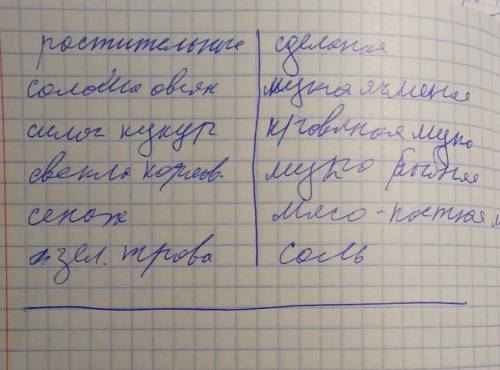 растительные сделаная
солома овсян мука ячменая
силос кукур кровяная мука
свекла кормов. мука рыбная
сенаж мясо-костная м
зел. трава соль